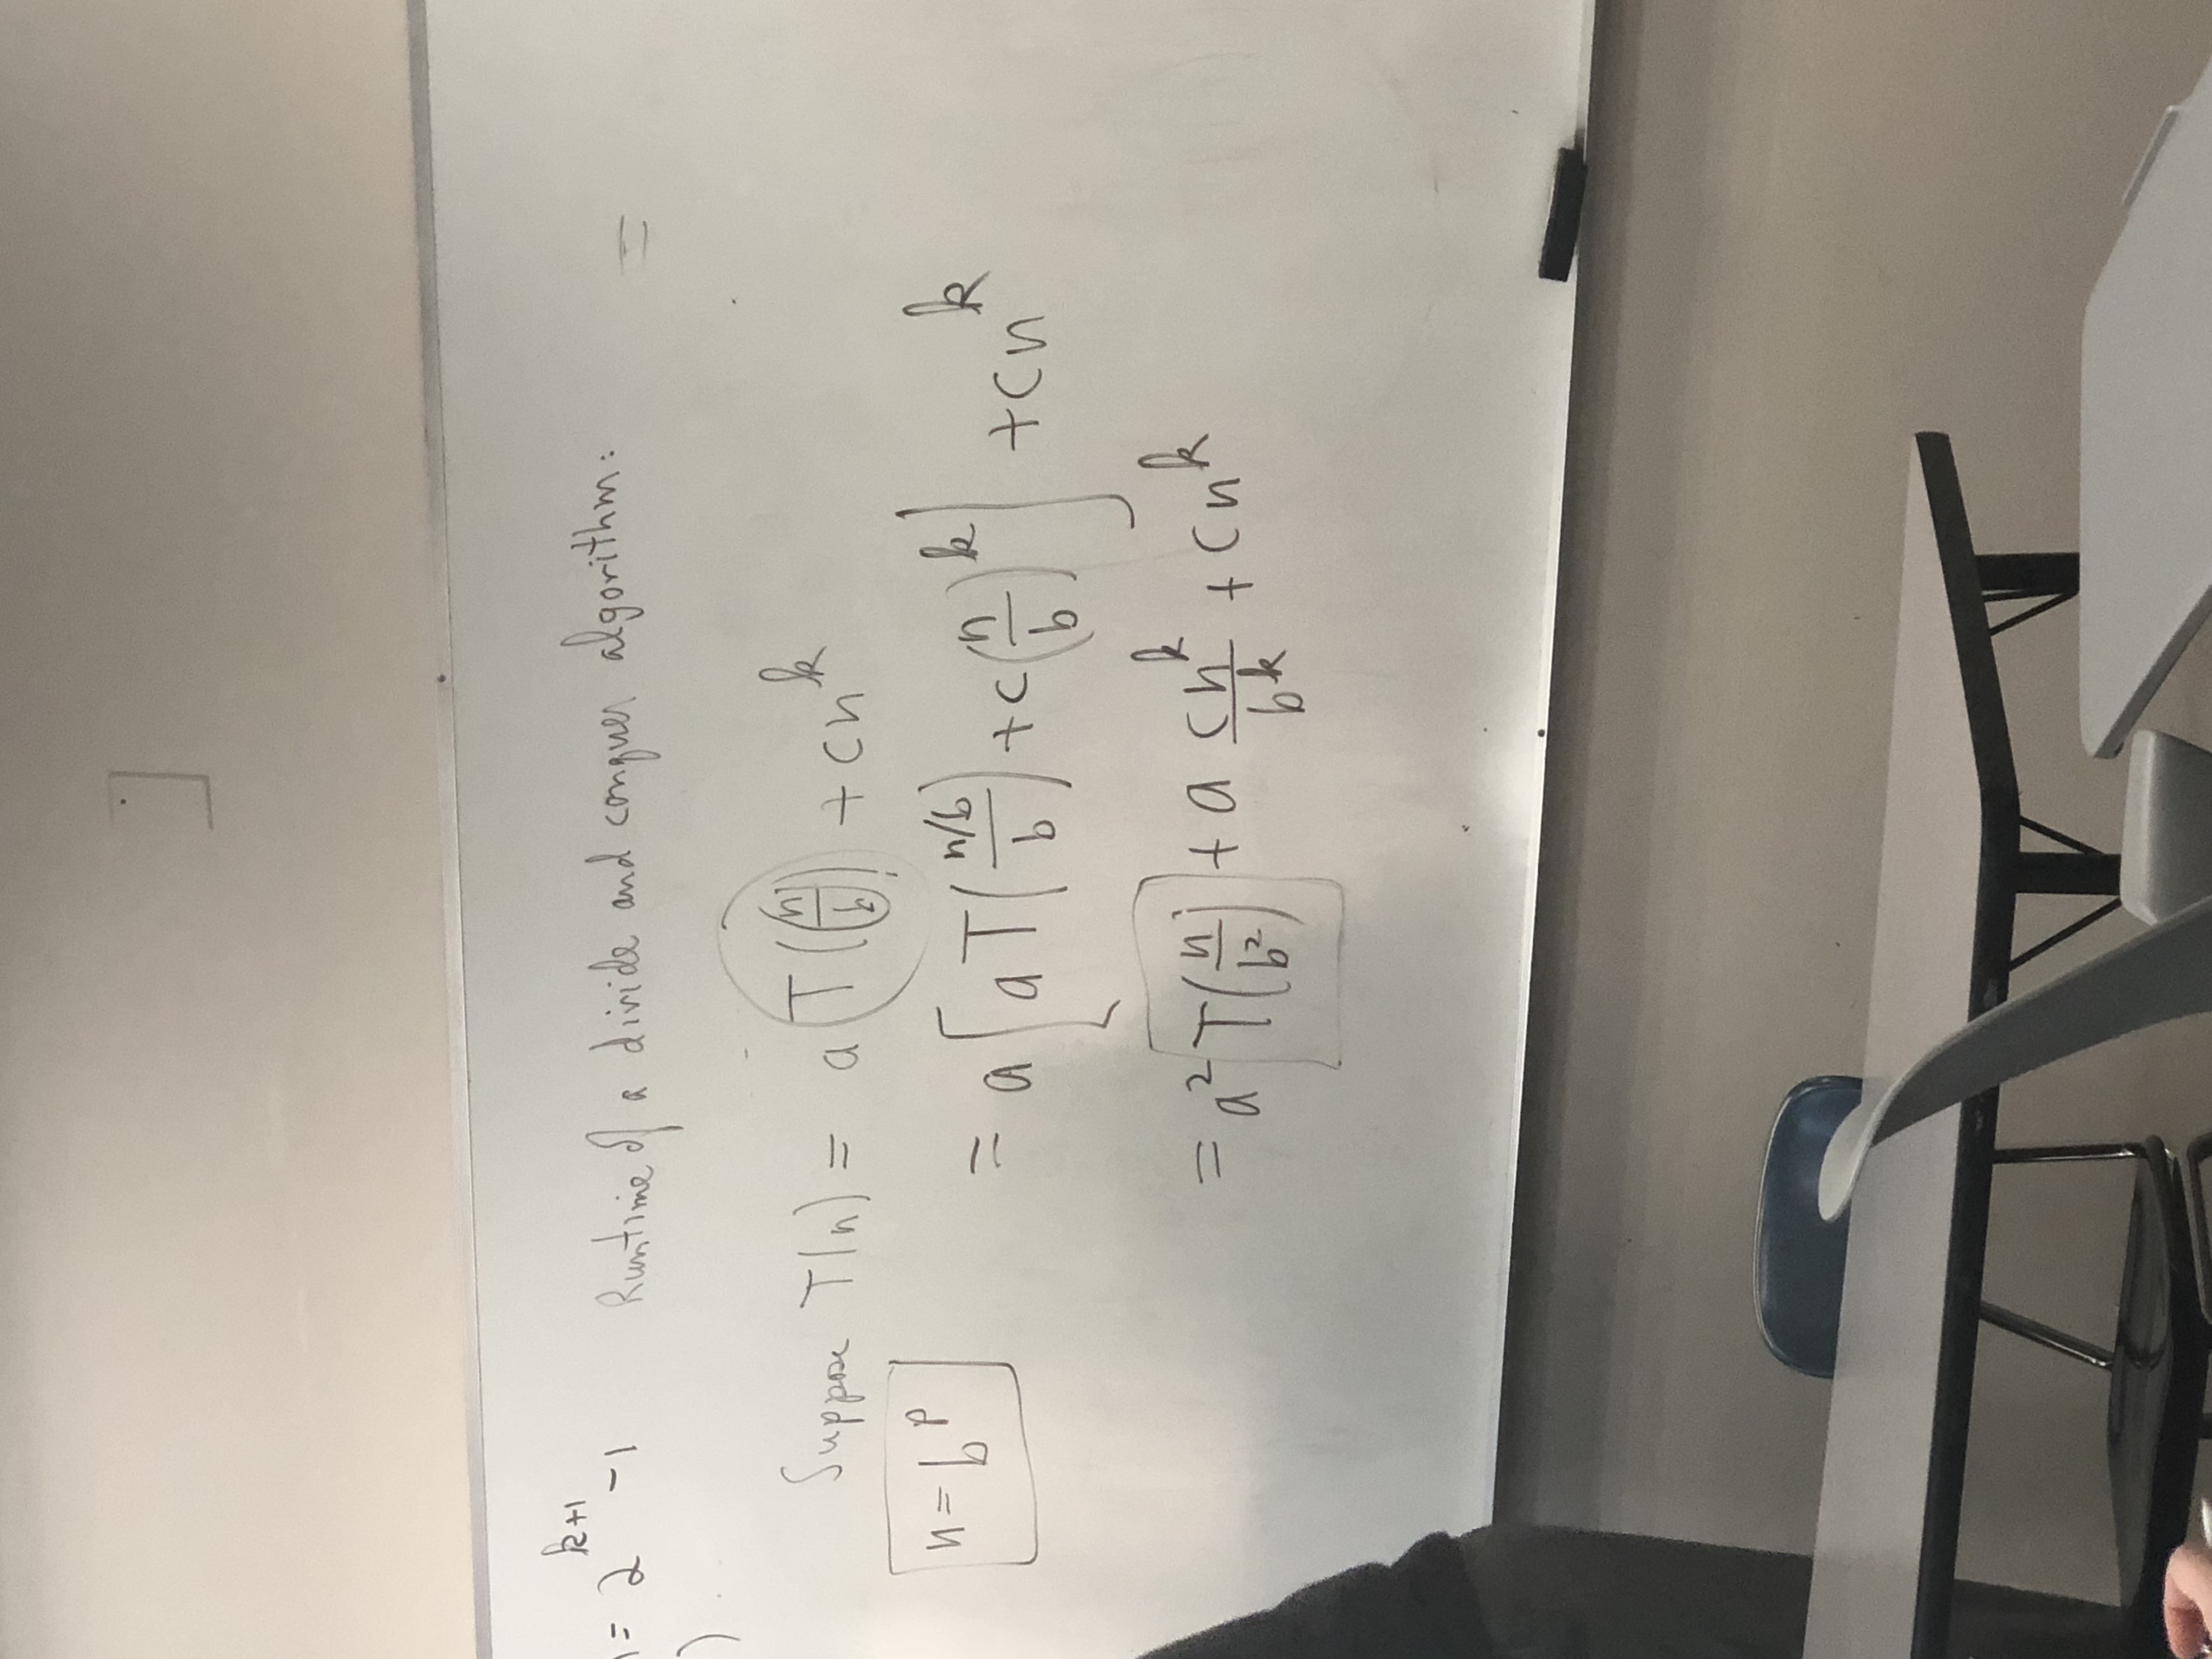 = 2^{k+1} - 1
Runtime of a divide and conquer algorithm:
=
)
Suppose T(n) = a T(n/b) + cn^k
n = b^p
= a [ a T((n/b)/b) + c(n/b)^k ] + cn^k
= a^2 T(n/b^2) + a cn^k/b^k + cn^k